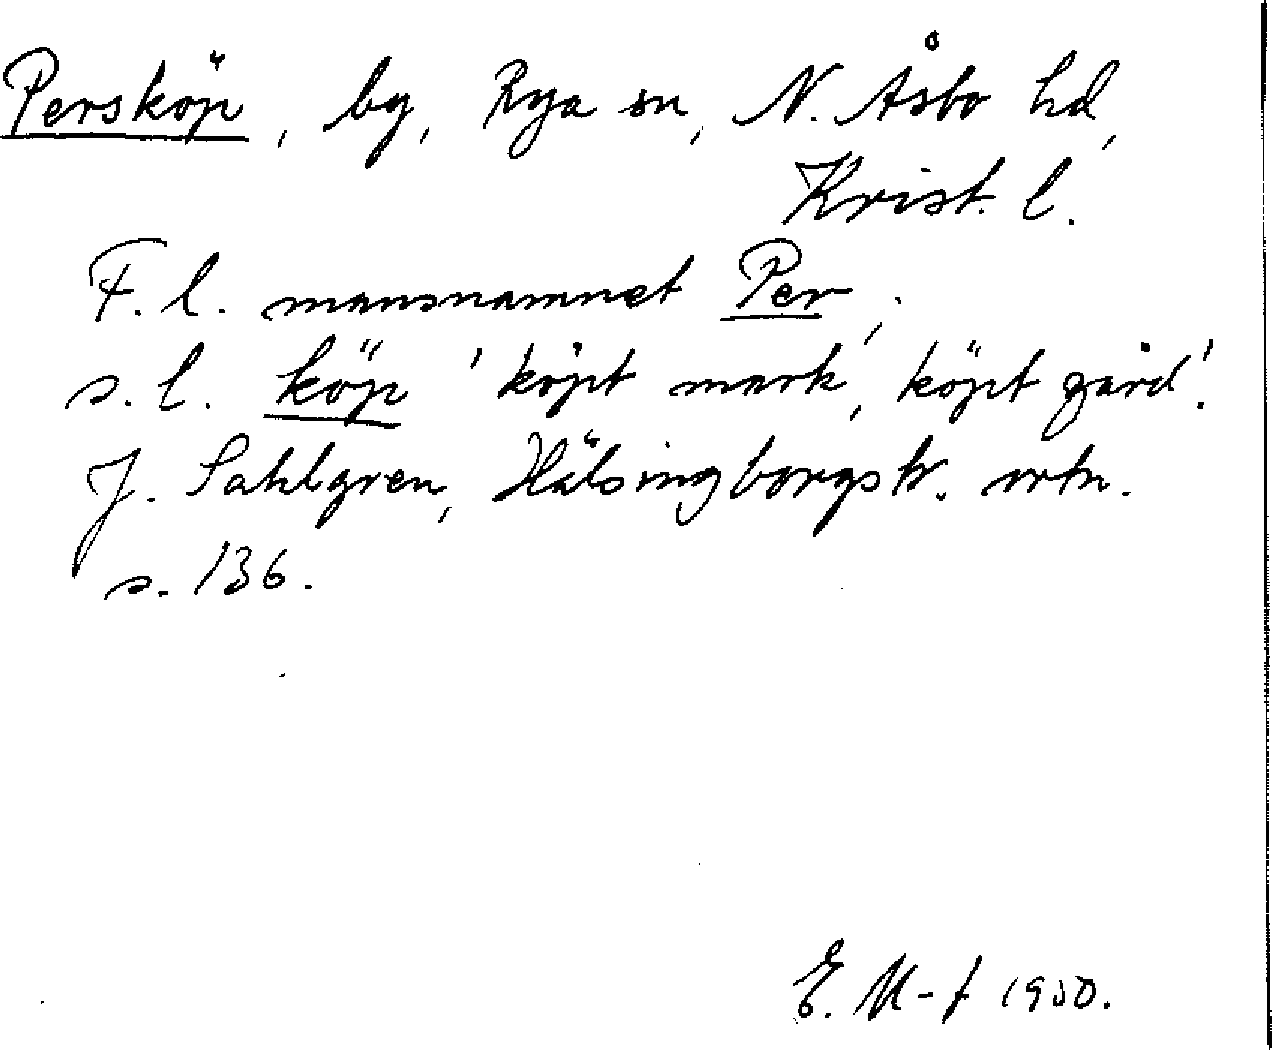 Persköp, by, Rya sn, N. Åsbo hd,
Krist. l.
F. l. mansnamnet Per,
s. l. köp 'köpt mark, köpt gård'.
J. Sahlgren, Hälsingborgstr. ortn.
s. 136.
E. M-f 1950.